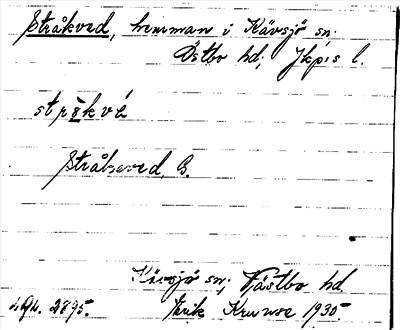 Stråkved, hemman i Kävsjö sn.
Östbo hd; Jkp:s l.
strå̱kvé
Stråkeved, B.
Kävsjö sn; Västbo hd.
2895. Erik Krunse 1930.